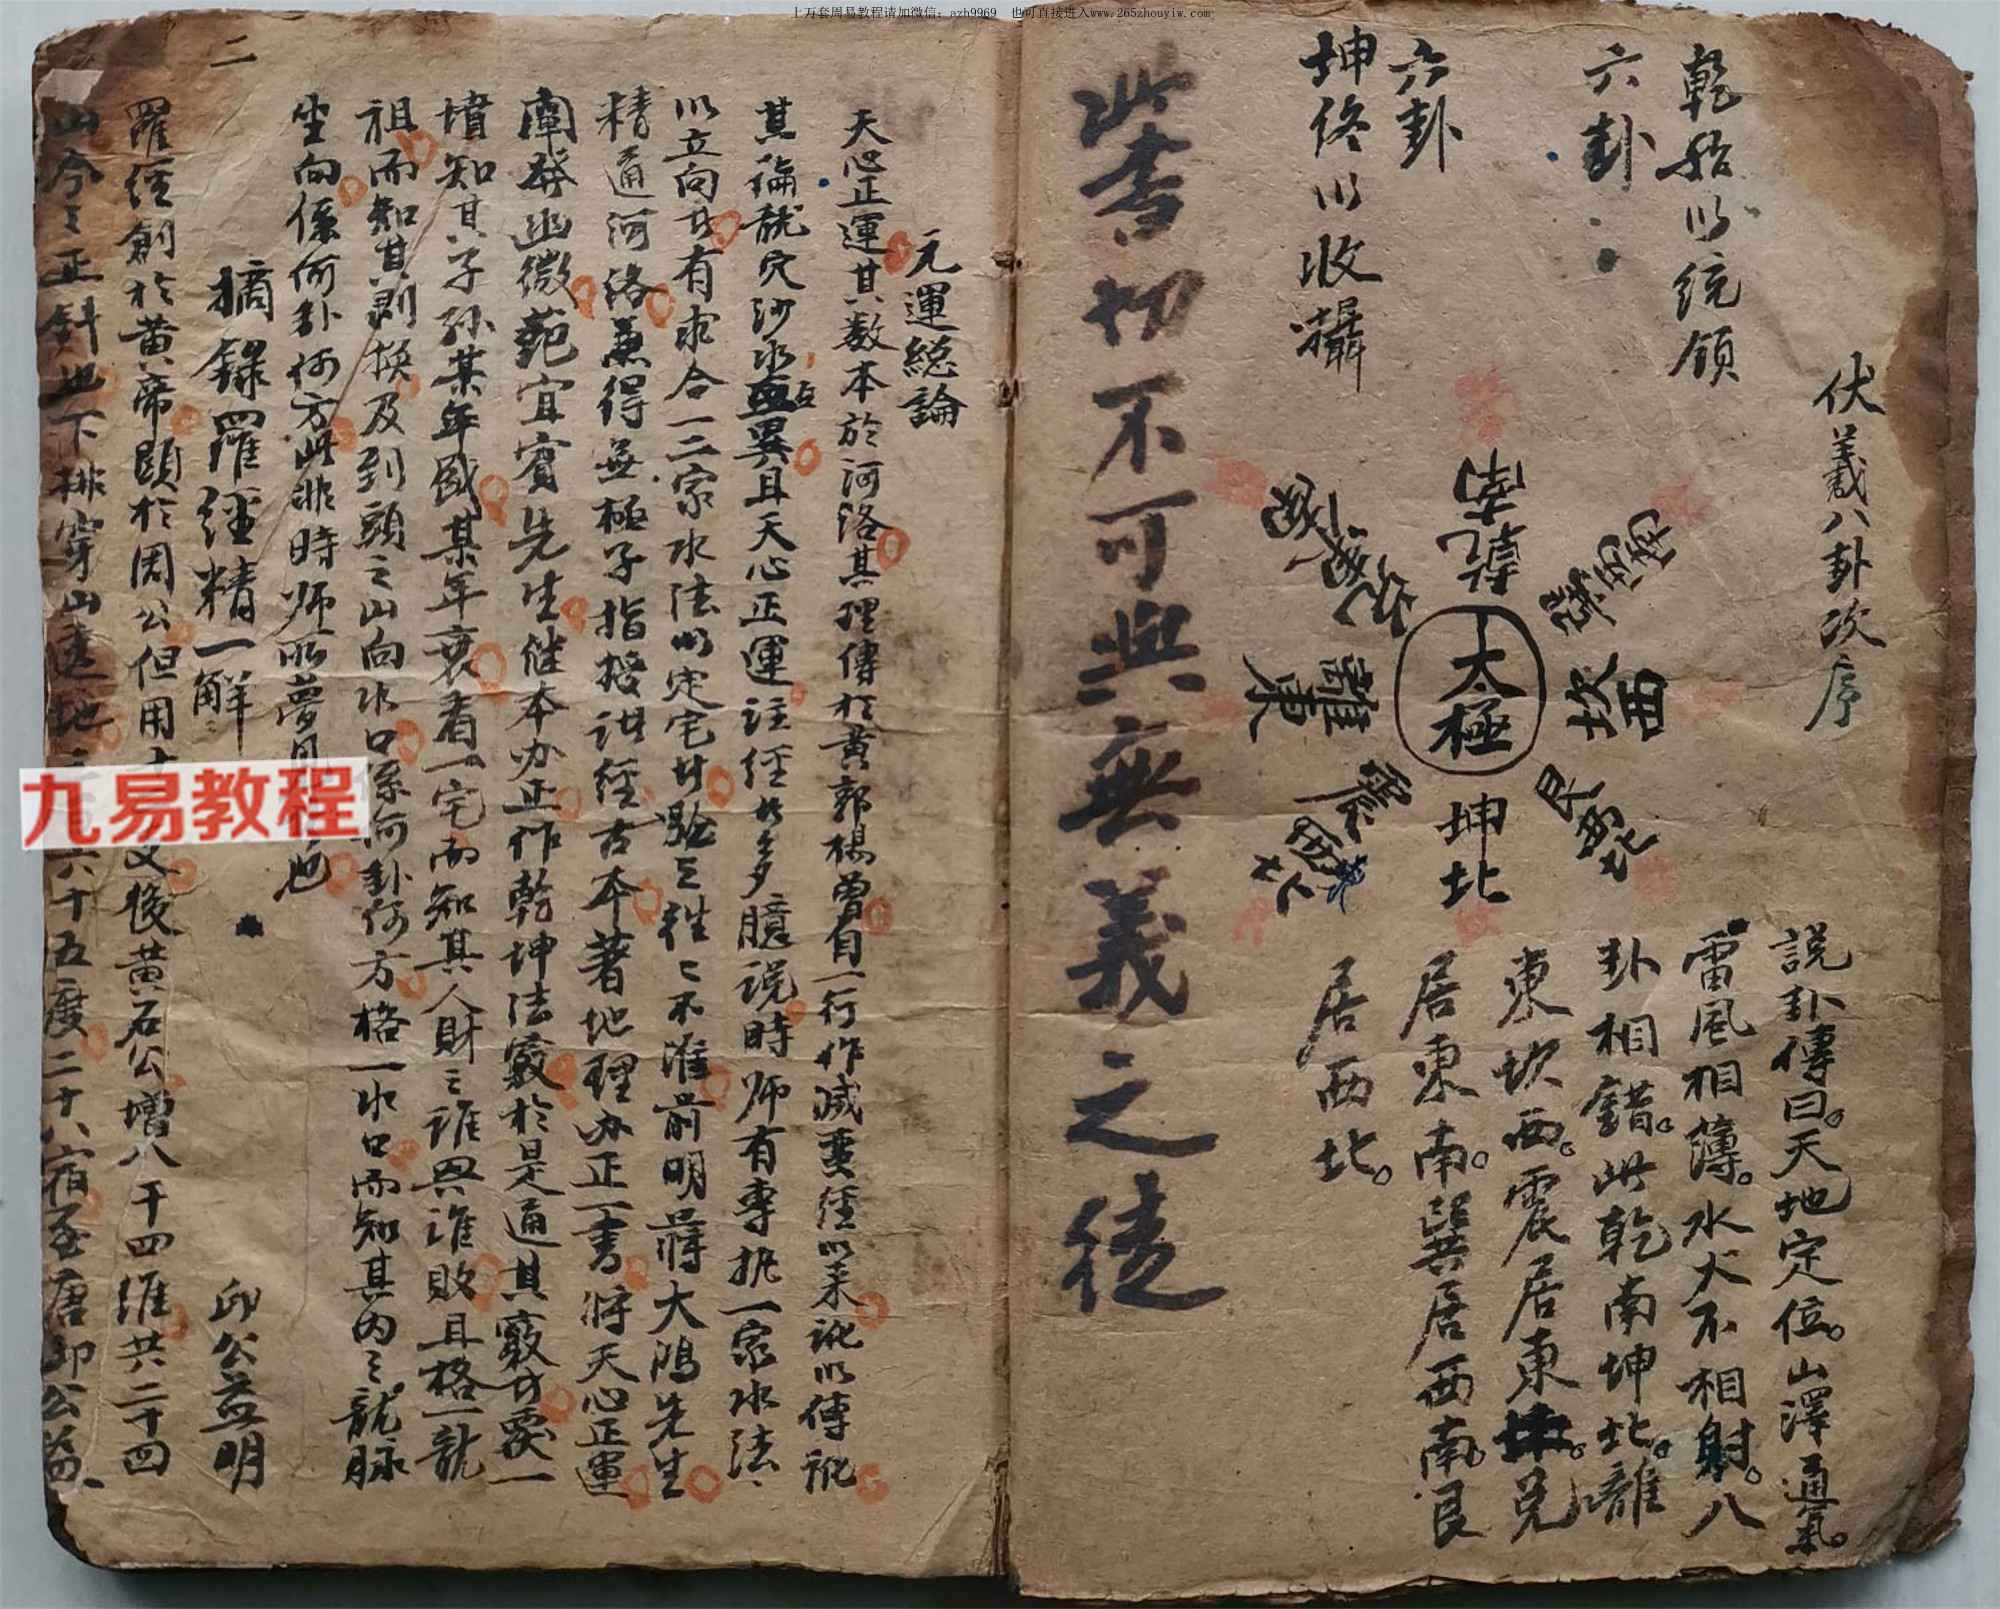 上万套周易教程请加微信：azh9969　也可直接进入www.265zhouyiw.com
伏羲八卦次序
乾始以统领
六卦
六卦
坤终以收攝
南
乾
太極
坤
北
離
東
坎
西
兌
東南
巽
西南
震
艮
西北
説卦傳曰。天地定位。山澤通氣。
雷風相薄。水火不相射。八
卦相錯。此乾南坤北。離
東坎西。震居東。兌
居東南。巽居西南。艮
居西北。
此書切不可與無義之徒
二
元運総論
天心正運其数本於河洛其理傳於黄郭楊曾自一行作滅蛮経以来訛以傳訛
其論龍穴沙水無異且天心正運註経者多臆説時师有專執一家水法
以立向者有求合一二家水法以定宅者驗之往々不准前明蔣大鴻先生
精通河洛兼得無極子指授註経古本著地理办正一書將天心正運
闡發幽微範宜賓先生继本办正作乾坤法竅於是通其竅者覆一
墳知其子孙某年盛某年衰看一宅而知其人財之誰興誰敗且格一龍
祖而知其剥换及到頭之山向水口係何卦何方格一水口而知其内之龍脉
坐向係何卦何方此非時师所夢見也
摘錄羅經精一解
邱公益明
羅経創於黄帝顕於周公但用十二支後黄石公增八干四維共二十四
山今之正針也下排穿山透地六十五度二十八宿至唐邱公益
九易教程